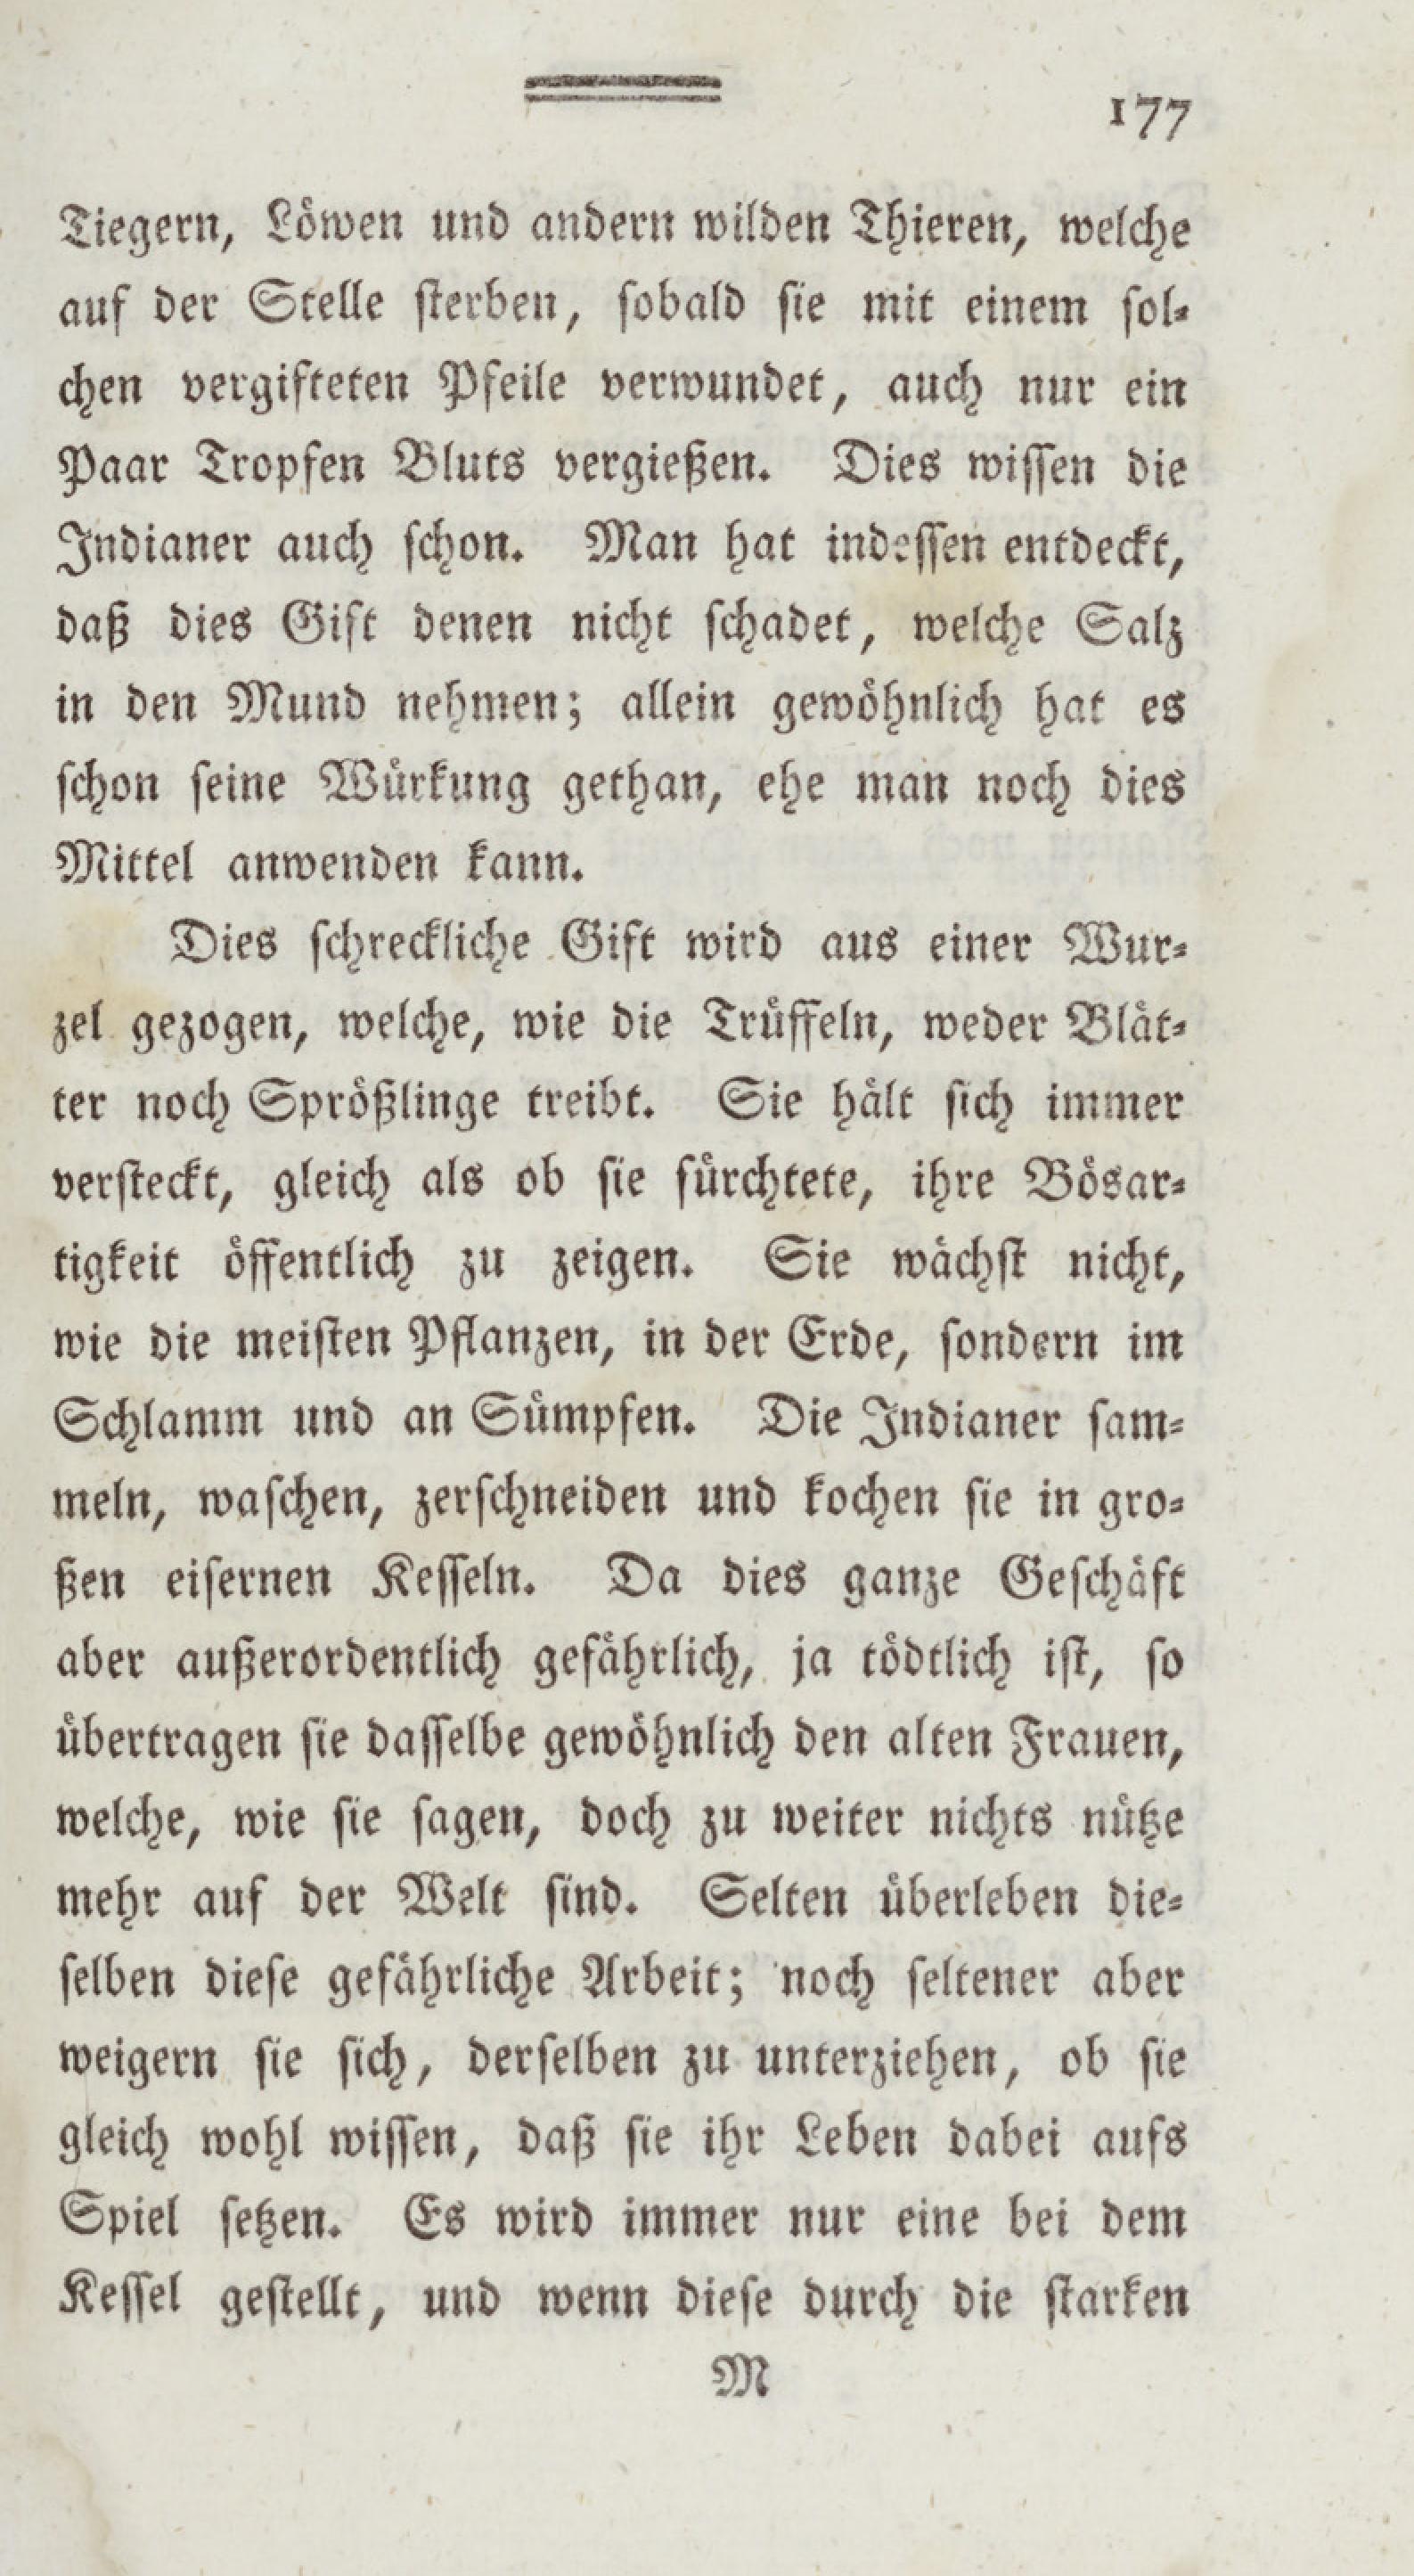 177
Tiegern, Löwen und andern wilden Thieren, welche
auf der Stelle sterben, sobald sie mit einem sol-
chen vergifteten Pfeile verwundet, auch nur ein
Paar Tropfen Bluts vergießen. Dies wissen die
Indianer auch schon. Man hat indessen entdeckt,
daß dies Gift denen nicht schadet, welche Salz
in den Mund nehmen; allein gewöhnlich hat es
schon seine Würkung gethan, ehe man noch dies
Mittel anwenden kann.
Dies schreckliche Gift wird aus einer Wur-
zel gezogen, welche, wie die Trüffeln, weder Blät-
ter noch Sprößlinge treibt. Sie hält sich immer
versteckt, gleich als ob sie fürchtete, ihre Bösar-
tigkeit öffentlich zu zeigen. Sie wächst nicht,
wie die meisten Pflanzen, in der Erde, sondern im
Schlamm und an Sümpfen. Die Indianer sam-
meln, waschen, zerschneiden und kochen sie in gro-
ßen eisernen Kesseln. Da dies ganze Geschäft
aber außerordentlich gefährlich, ja tödtlich ist, so
übertragen sie dasselbe gewöhnlich den alten Frauen,
welche, wie sie sagen, doch zu weiter nichts nütze
mehr auf der Welt sind. Selten überleben die-
selben diese gefährliche Arbeit; noch seltener aber
weigern sie sich, derselben zu unterziehen, ob sie
gleich wohl wissen, daß sie ihr Leben dabei aufs
Spiel setzen. Es wird immer nur eine bei dem
Kessel gestellt, und wenn diese durch die starken
M